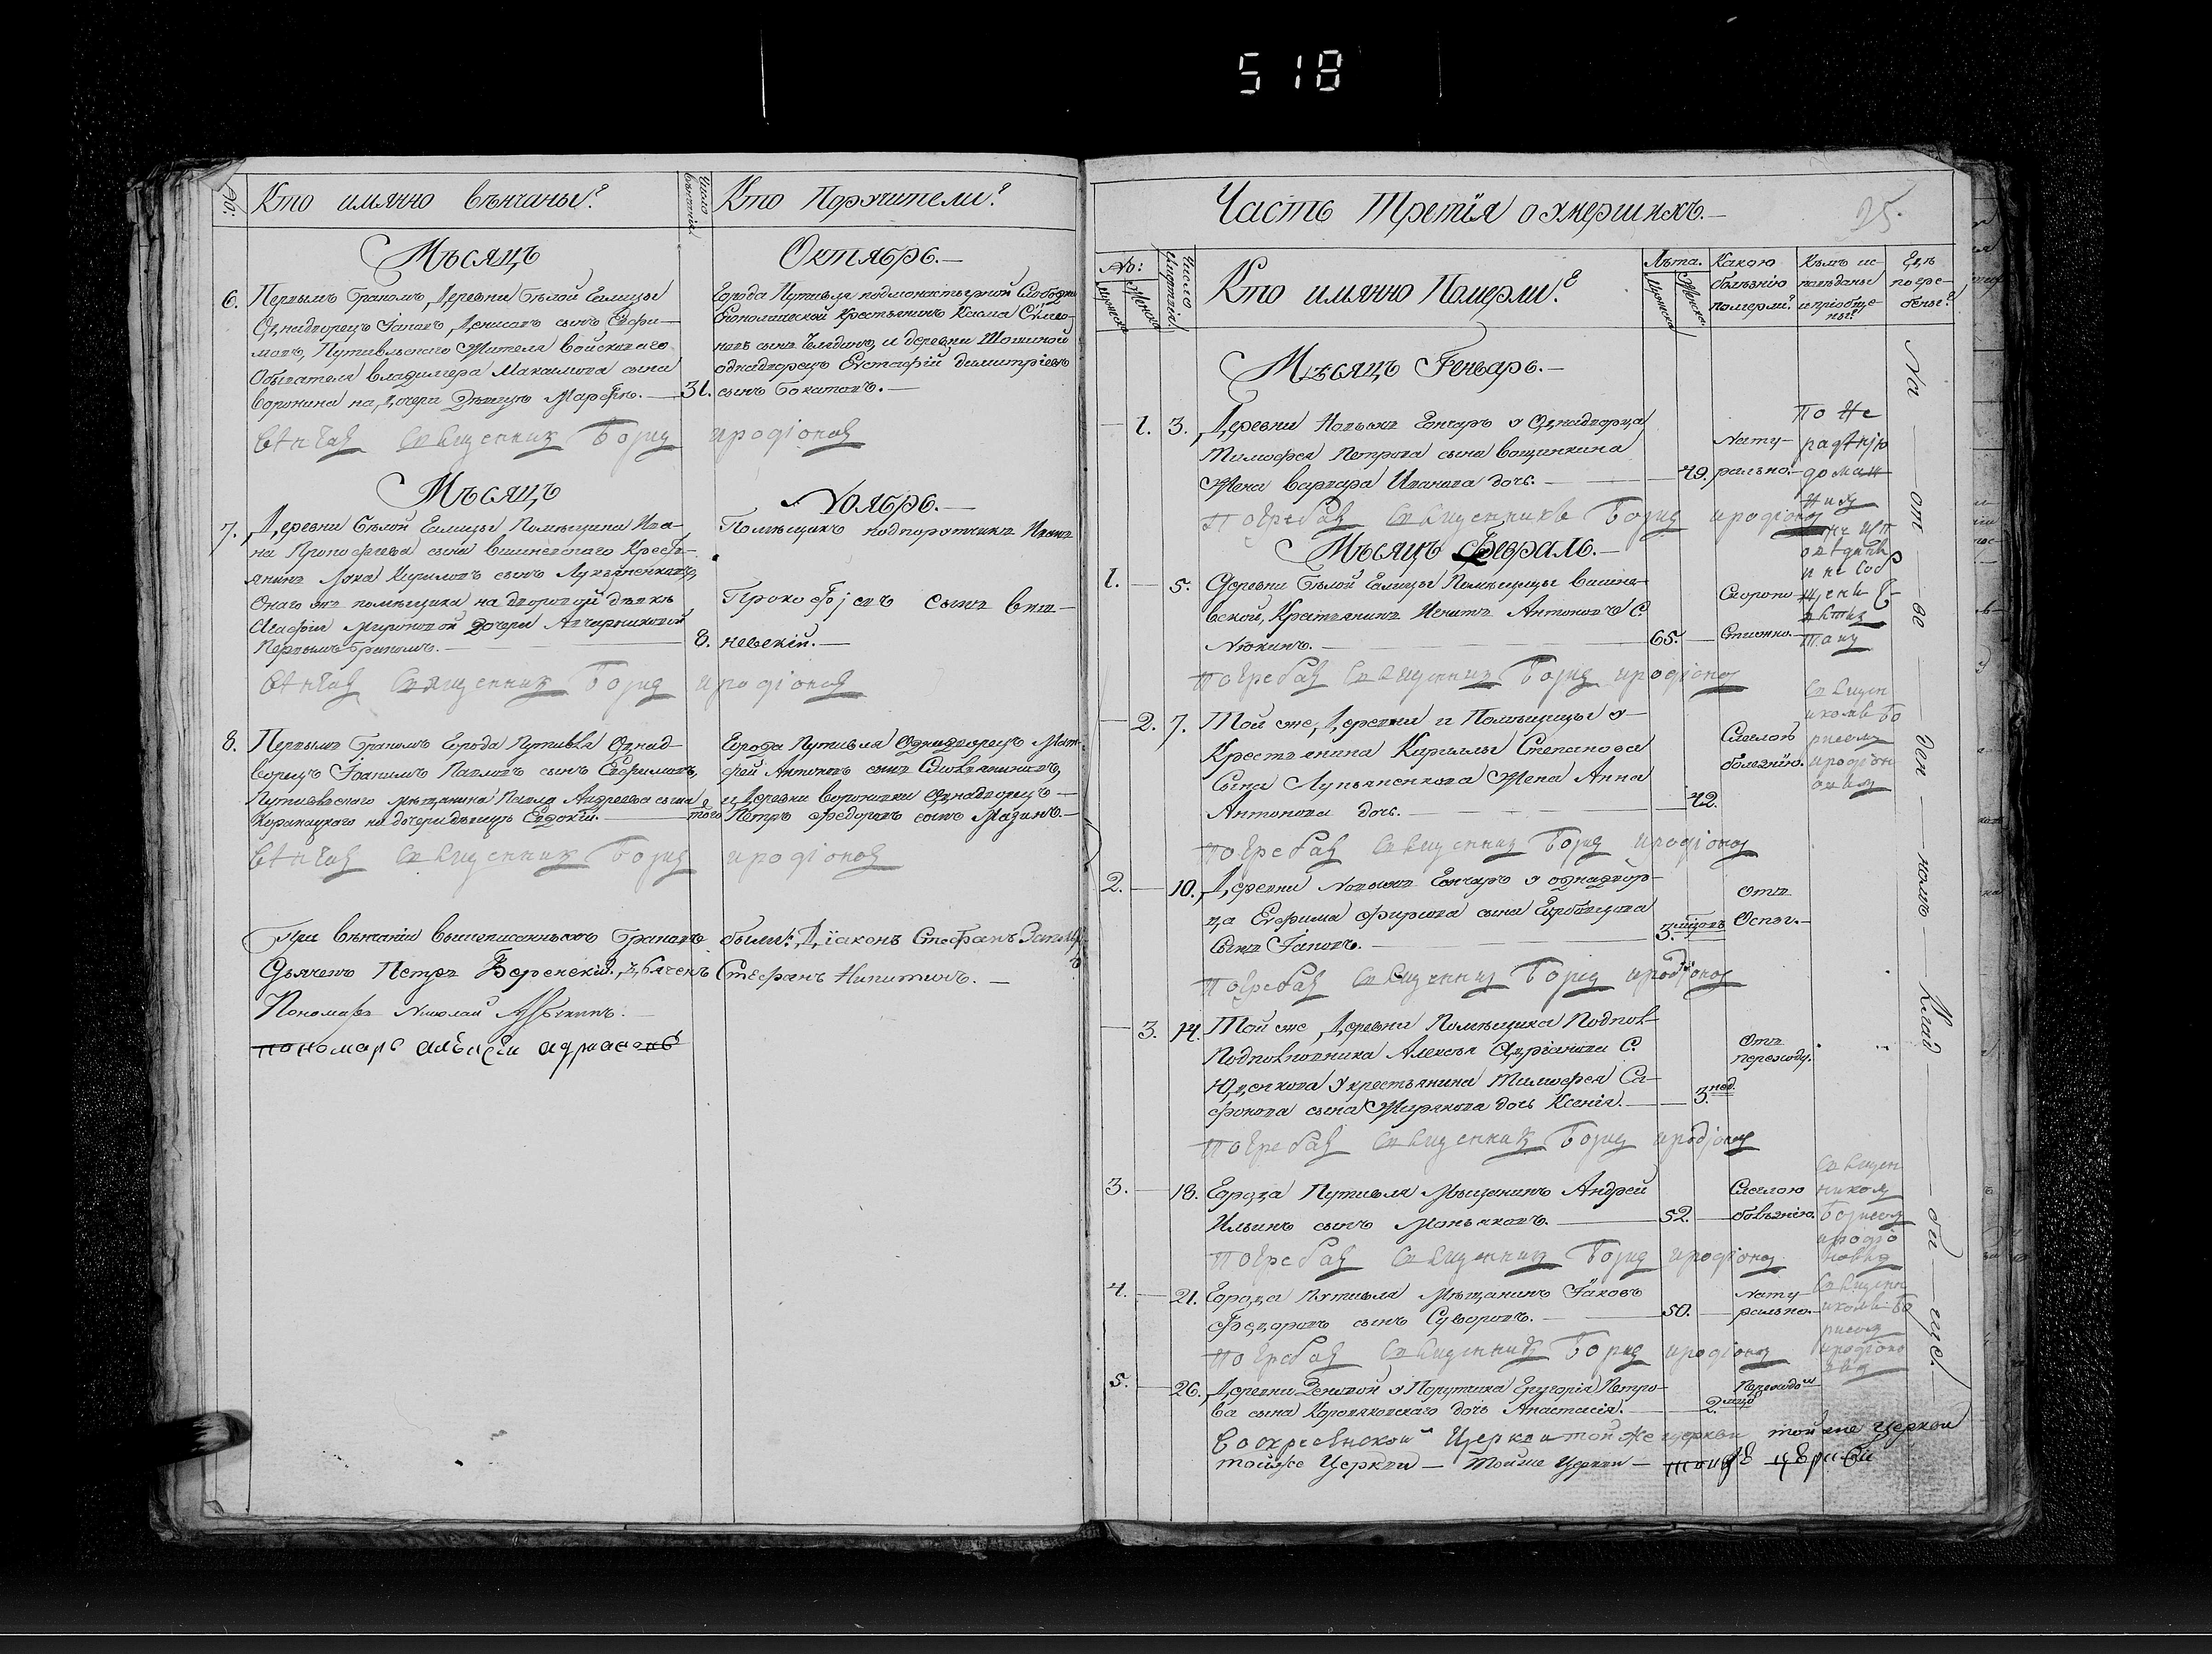 518
No: Кто имянно вѣнчаны? Число вѣнчанія Кто Поручители?
Мѣсяцъ Октябрь.
6. Первымъ бракомъ, Деревни Бѣлой Галицы
Однадворецъ Іаковъ, Денисовъ сынъ Ефи-
мовъ, Путивльскаго Жителя войсковаго
Обывателя Владимера Максимова сына
Воронина на, дочери Дѣвицѣ Марфѣ. 31.
Города Путивля подмонастырной Слободки
Економической Крестьянинъ Козма
сынъ и деревни
однадворецъ Евстафій Димитріевъ
сынъ
Вѣнчалъ Священникъ Борисъ Иродіоновъ
Мѣсяцъ Ноябрь.
7. Деревни Бѣлой Галицы Помѣщика Ива-
на Прокофьева сына Вишневскаго Кресть-
янинъ Лука Кириловъ сынъ Лукьяненковъ,
Онаго же помѣщика на дворовой дѣвкѣ
Агафіи Мироновой дочери
Первымъ бракомъ. 8.
Помѣщикъ подпорутчикъ Иванъ
Прокофьевъ сынъ Виш-
невскій.
Вѣнчалъ Священникъ Борисъ Иродіоновъ
8. Первымъ бракомъ Города Путивля Однад-
ворецъ Іоакимъ Павловъ сынъ Ефимовъ,
Путивльскаго мѣщанина Павла Андреева сына
на дочери дѣвицѣ Евдокіи. того
Города Путивля Однадворецъ Мат-
фей Антоновъ сынъ
и Деревни Вороновки Однадворецъ
Петръ Федоровъ сынъ Мазинъ.
Вѣнчалъ Священникъ Борисъ Иродіоновъ
При вѣнчаніи вышеписанныхъ браковъ были: Діаконъ Стефанъ
Дьячекъ Петръ Дьячекъ Стефанъ Никитинъ.
Пономарь Николай
пономарь
Часть Третія о умершихъ.
25.
No: Мужеска Женска Число Кто имянно Померли? Лѣта. Мужеска Женска Какою болѣзнію померли? Кѣмъ исповѣданы и пріобщены? Гдѣ погребены?
Мѣсяцъ Генварь.
1. 3. Деревни Новыхъ Гончаръ у Однадворца
Тимофея Петрова сына Вощинкина
Жена Варвара Иванова дочь. 49. Натурально. По нерадѣнію
Погребалъ Священникъ Борисъ Иродіоновъ
Мѣсяцъ Февраль.
1. 5. Деревни Бѣлой Галицы Помѣщицы Вишне-
вской, Крестьянинъ Игнатъ Антоновъ С.
Люкинъ. 65. Скоропостижно.
Погребалъ Священникъ Борисъ Иродіоновъ
2. 7. Той же, Деревни и Помѣщицы у
Крестьянина Кирилы Степанова
Сына Лукьяненкова Жена Анна
Антонова дочь. 42. болезнію. Священникомъ Борисомъ Иродіоновымъ
Погребалъ Священникъ Борисъ Иродіоновъ
2. 10. Деревни Новыхъ Гончаръ у однадвор-
ца Евфима сына
Сынъ Іаковъ. 3. Отъ Оспы.
Погребалъ Священникъ Борисъ Иродіоновъ
3. 14. Той же Деревни Помѣщика Подпол-
Подполковника Алексея Адріанова С.
Юденкова у крестьянина Тимофея Са-
фонова сына дочь Ксенія. 3. нед. Отъ переходу.
Погребалъ Священникъ Борисъ Иродіоновъ
3. 18. Города Путивля Мѣщанинъ Андрей
Ильинъ сынъ Маньяковъ. 52. болѣзнію. Священникомъ Борисомъ Иродіоновымъ
Погребалъ Священникъ Борисъ Иродіоновъ
4. 21. Города Путивля Мѣщанинъ Іаковъ
Федоровъ сынъ Суворовъ. 50. Натурально. Священникомъ Борисомъ Иродіоновымъ
Погребалъ Священникъ Борисъ Иродіоновъ
5. 26. Деревни Зеновой у Порутчика Григорія Петро-
ва сына дочь Анастасія. 2. Переходом
На отведенномъ Кладбище.
Воскресенской Церкви той же церкви той же церкви
тойже Церкви — Тойже Церкви —